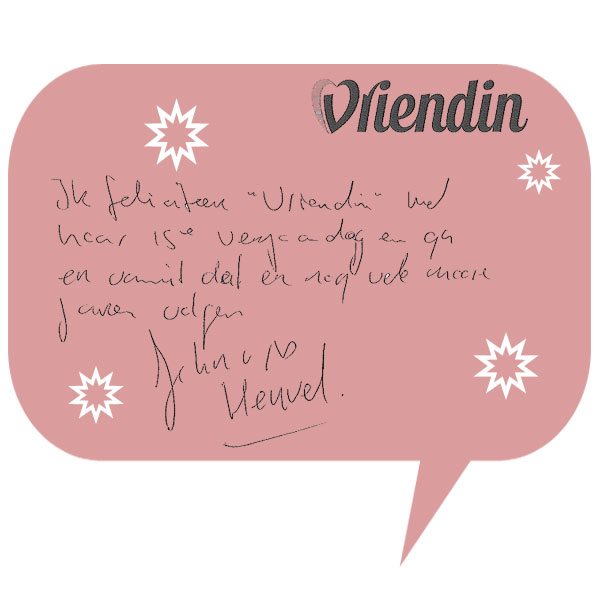 Vriendin
Ik feliciteer "Vriendin" met
haar 15e verjaardag en ga
er vanuit dat er nog vele mooie
jaren volgen
John vd
Heuvel.